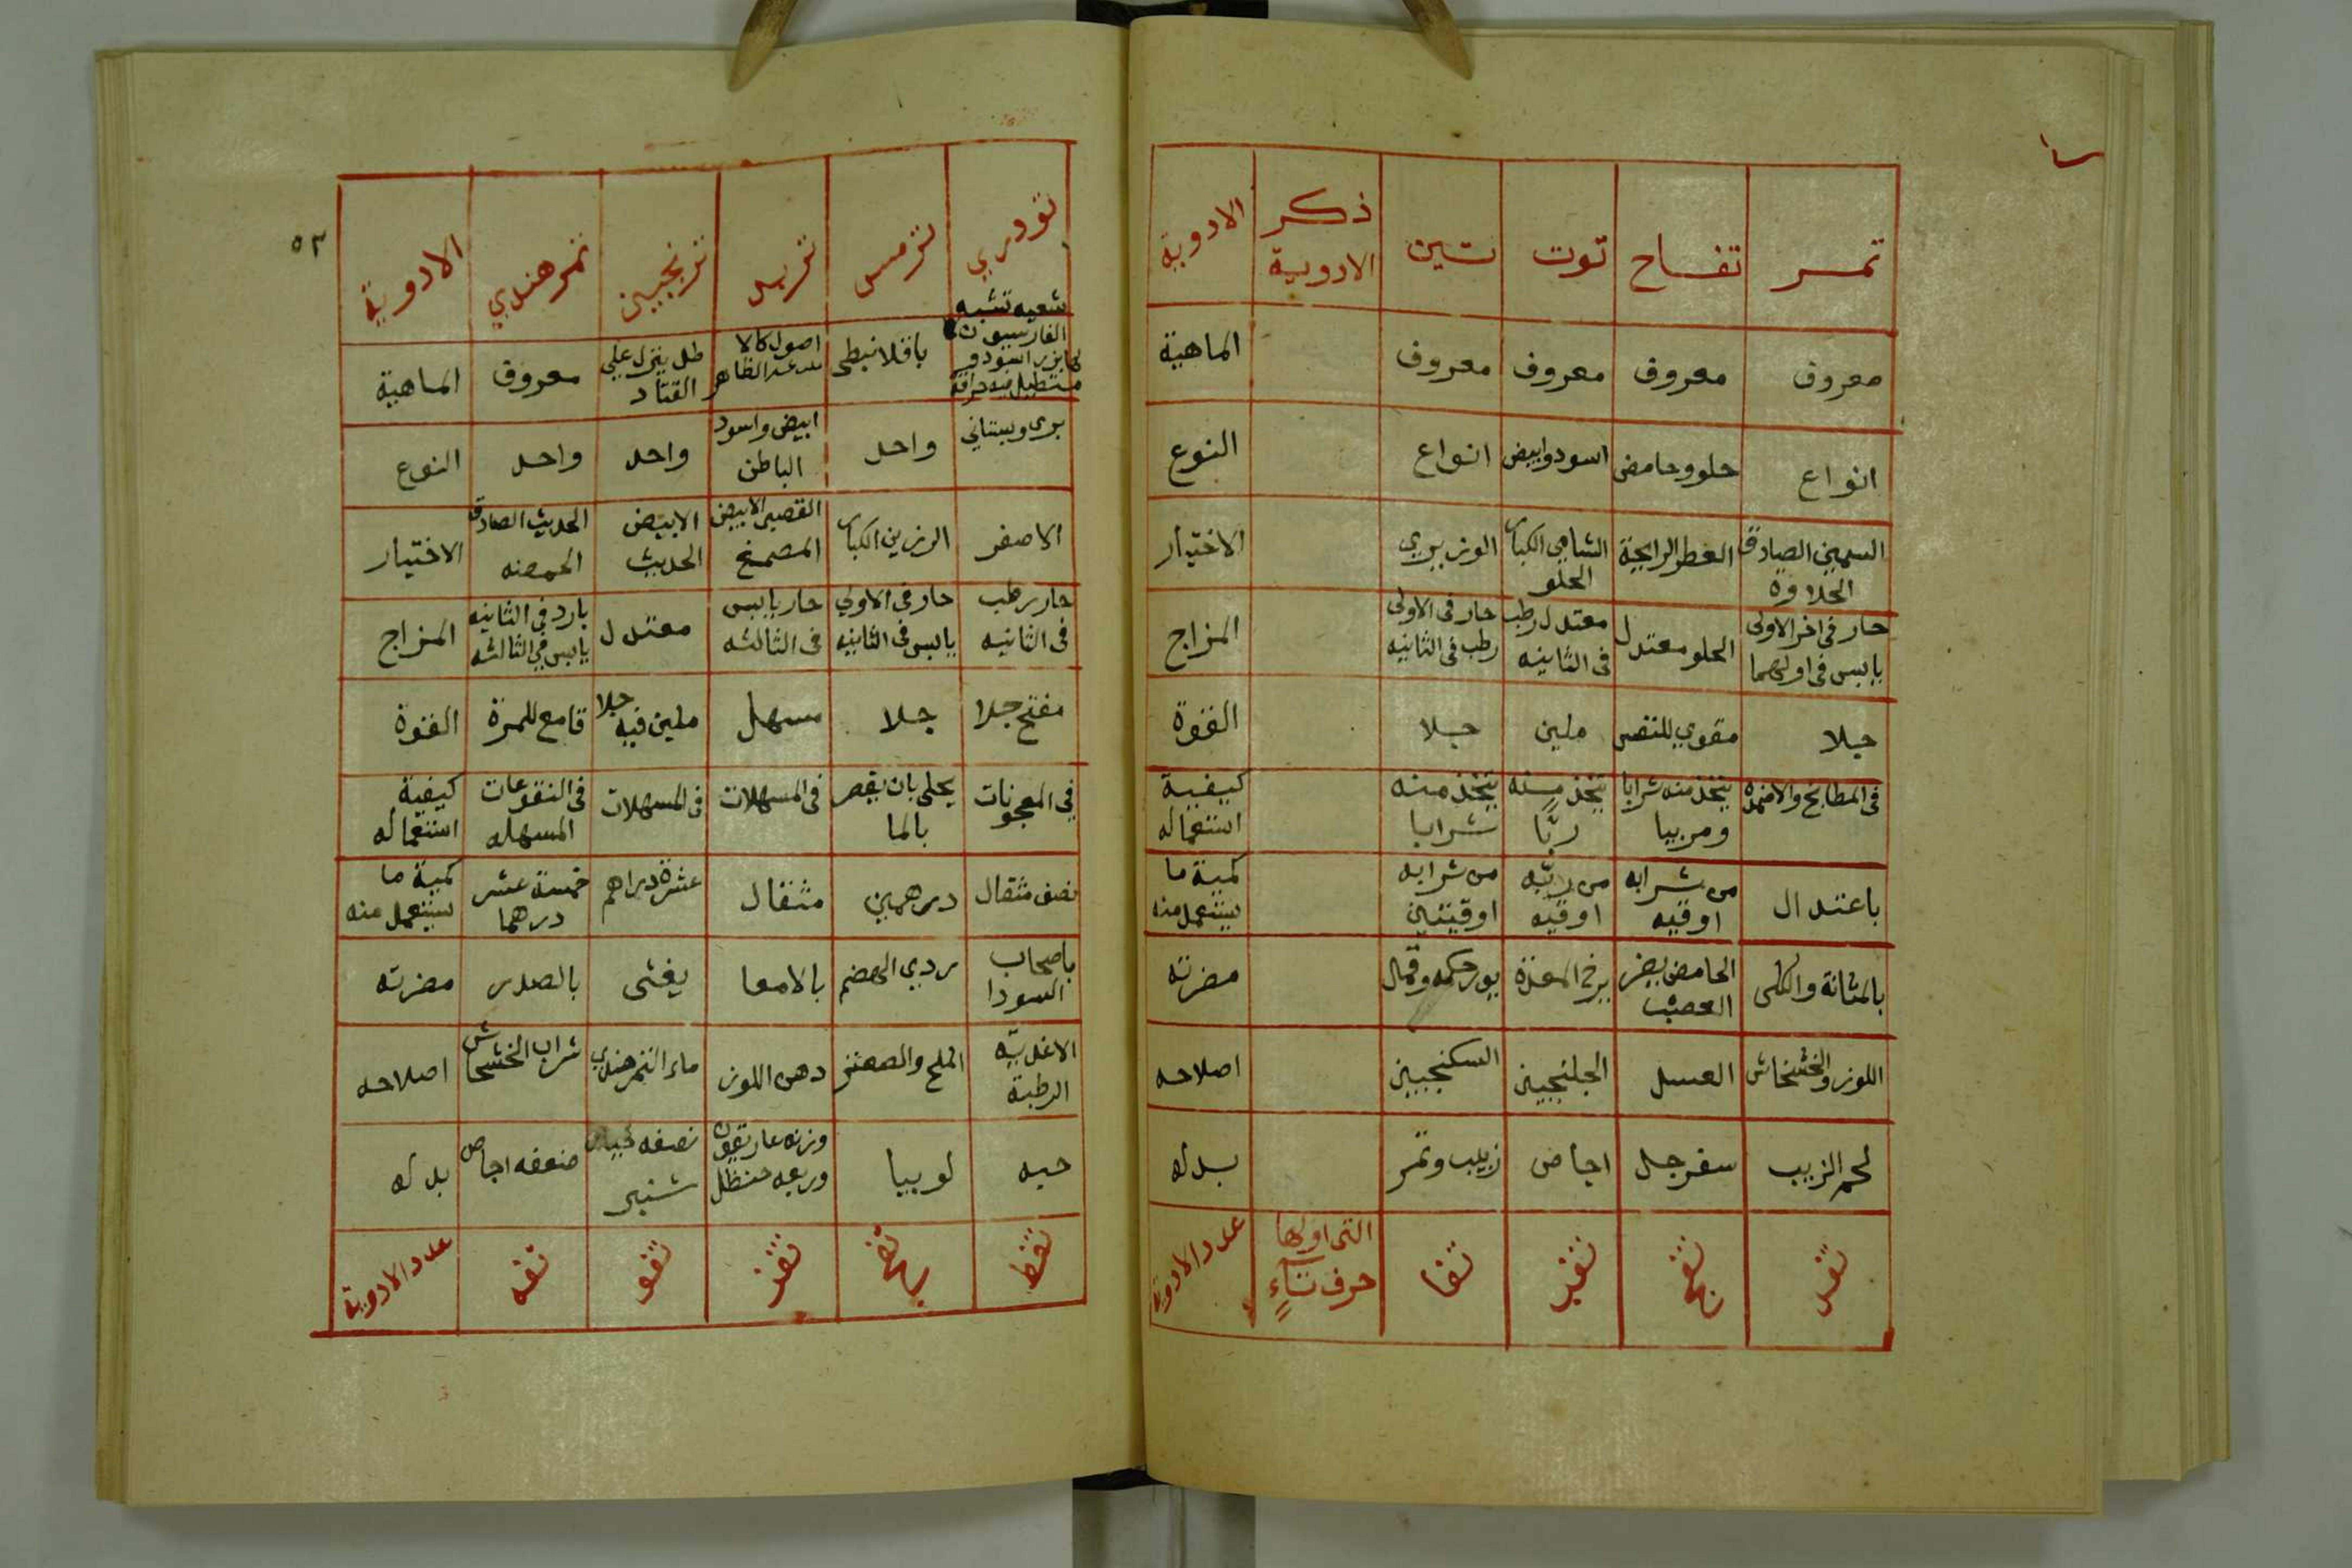 تمر تفاح توت تين ذكر الادوية الادوية
معروف معروف معروف معروف الماهية
انواع حلو وحامض اسود وابيض انواع النوع
السمين الصادق الحلاوة العطر الرايحة الشامي الكبار الحلو الوزيري الاختيار
حار في اخر الاولى يابس في اولهما الحلو معتدل معتدل رطب في الثانيه حار في الاولى رطب في الثانيه المزاج
جلا مقوي للنفس ملين جلا القوة
في المطابخ والاضمدة يتخذ منه شرابا ومربيا يتخذ منه ربّا يتخذ منه شرابا كيفية استعماله
باعتدال من شرابه اوقيه من ربّه اوقيه من شرابه اوقيتين كمية ما يستعمل منه
بالمثانة والكلى الحامض يضر العصب يرخي المعدة يورث حكه وقمل مضرته
اللوز والخشخاش العسل الجلنجبين السكنجبين اصلاحه
لحم الزبيب سفرجل اجاص زبيب وتمر بدله
التي اولها حرف تاءٍ عدد الادوية
تودري ترمس تربد ترنجبين تمر هندي الادوية
٥٢
باقلا نبطي طل ينزل علي القتاد معروف الماهية
بري وبستاني واحد ابيض واسود الباطن واحد واحد النوع
الاصفر الرزين الكبار القصبي الابيض المصمغ الابيض الحديث الحديث الصادق الحموضه الاختيار
حار رطب في الثانيه حار في الاولي يابس في الثانيه حار يابس في الثالثه معتدل بارد في الثانيه يابس في الثالثه المزاج
مفتح جلا جلا مسهل ملين فيه جلا قامع للمرة القوة
في المعجونات يحلى بان ينقع بالما في المسهلات في المسهلات في النقوعات المسهله كيفية استعماله
نصف مثقال درهمين مثقال عشرة دراهم خمسة عشر درهما كمية ما يستعمل منه
باصحاب السودا ردي الهضم بالامعا يغثى بالصدر مضرته
الاغذية الرطبة الملح والصعتر دهن اللوز ماء التمر هندي شراب الخشخاش اصلاحه
حبه لوبيا وزنه غاريقون وربعه حنظل نصفه خيار شنبر ضعفه اجاص بدله
عدد الادوية